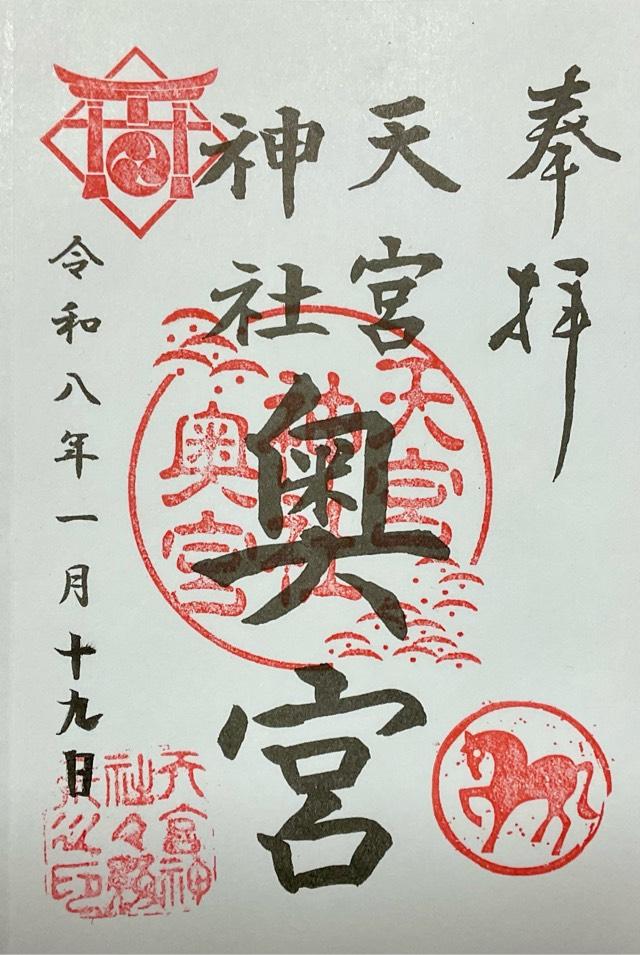 奉拝
天宮
神社
奥宮
令和八年一月十九日
天宮
神社
奥宮
天宮神
社々務
之印